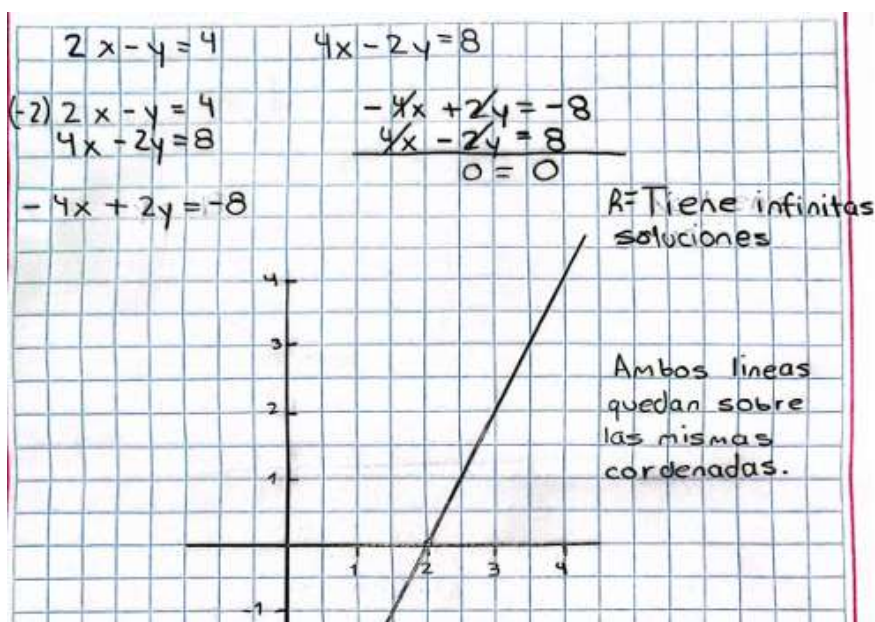 2x-y=4 4x-2y=8
(-2) 2x-y=4
4x-2y=8
-4x+2y=-8
-4x+2y=-8
4x-2y=8
0=0
R=Tiene infinitas
soluciones
4
3
2
1
-1
1 2 3 4
Ambos lineas
quedan sobre
las mismas
cordenadas.